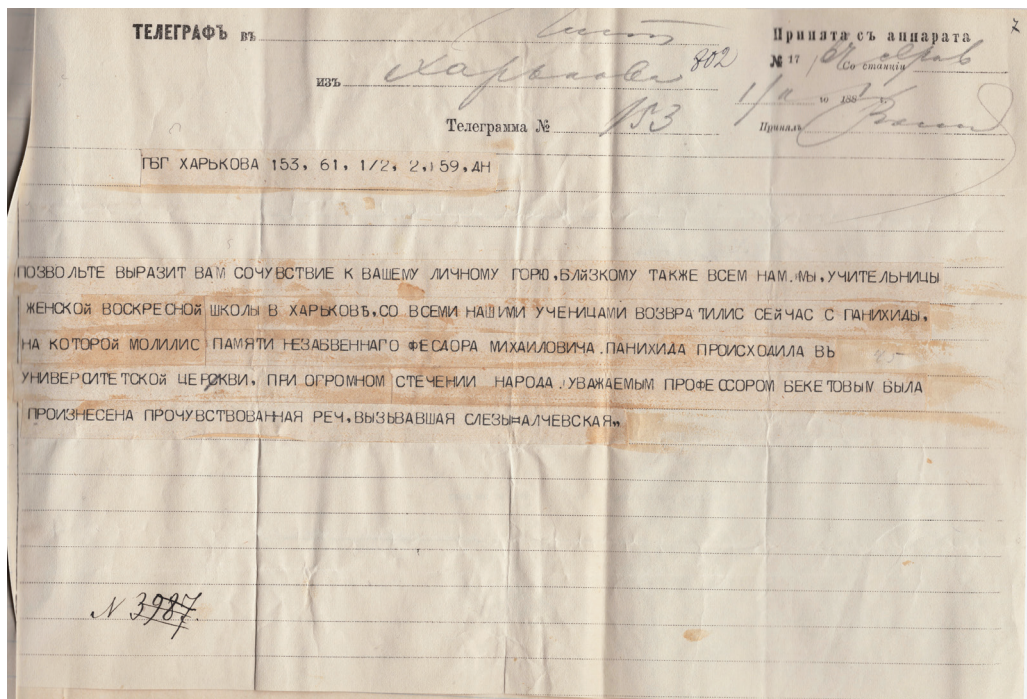 ТЕЛЕГРАФЪ въ
Принята съ аппарата
7
изъ Харькова 802
№ 17
Со станціи
1/II го 1881
Телеграмма № 153
Принялъ
ПБГ ХАРЬКОВА 153, 61, 1/2, 2, 59, ДН
ПОЗВОЛЬТЕ ВЫРАЗИТ ВАМ СОЧУВСТВИЕ К ВАШЕМУ ЛИЧНОМУ ГОРЮ, БЛИЗКОМУ ТАКЖЕ ВСЕМ НАМ. МЫ, УЧИТЕЛЬНИЦЫ
ЖЕНСКОЙ ВОСКРЕСНОЙ ШКОЛЫ В ХАРЬКОВѢ, СО ВСЕМИ НАШИМИ УЧЕНИЦАМИ ВОЗВРАТИЛИС СЕЙЧАС С ПАНИХИДЫ,
НА КОТОРОЙ МОЛИЛИС ПАМЯТИ НЕЗАБВЕННАГО ФЕДОРА МИХАИЛОВИЧА. ПАНИХИДА ПРОИСХОДИЛА ВЪ
УНИВЕРСИТЕТСКОЙ ЦЕРКВИ, ПРИ ОГРОМНОМ СТЕЧЕНИИ НАРОДА. УВАЖАЕМЫМ ПРОФЕССОРОМ БЕКЕТОВЫМ БЫЛА
ПРОИЗНЕСЕНА ПРОЧУВСТВОВАННАЯ РЕЧ, ВЫЗЫВАВШАЯ СЛЕЗЫ=АЛЧЕВСКАЯ„
N 3987